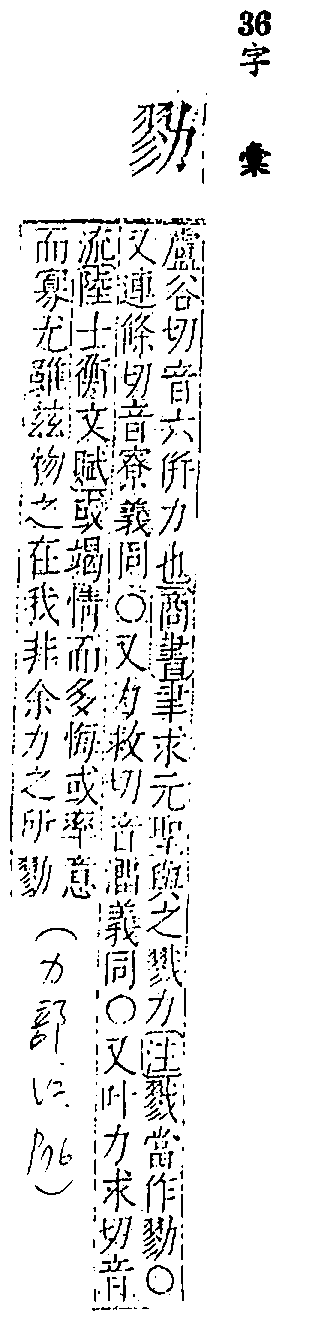 36字彙
勠
盧谷切音六併力也商書聿求元聖與之戮力注戮當作勠○
又連條切音寮義同○又力救切音溜義同○又叶力求切音
流陸士衡文賦或竭情而多悔或率意
而寡尤雖茲物之在我非余力之所勠
(力部